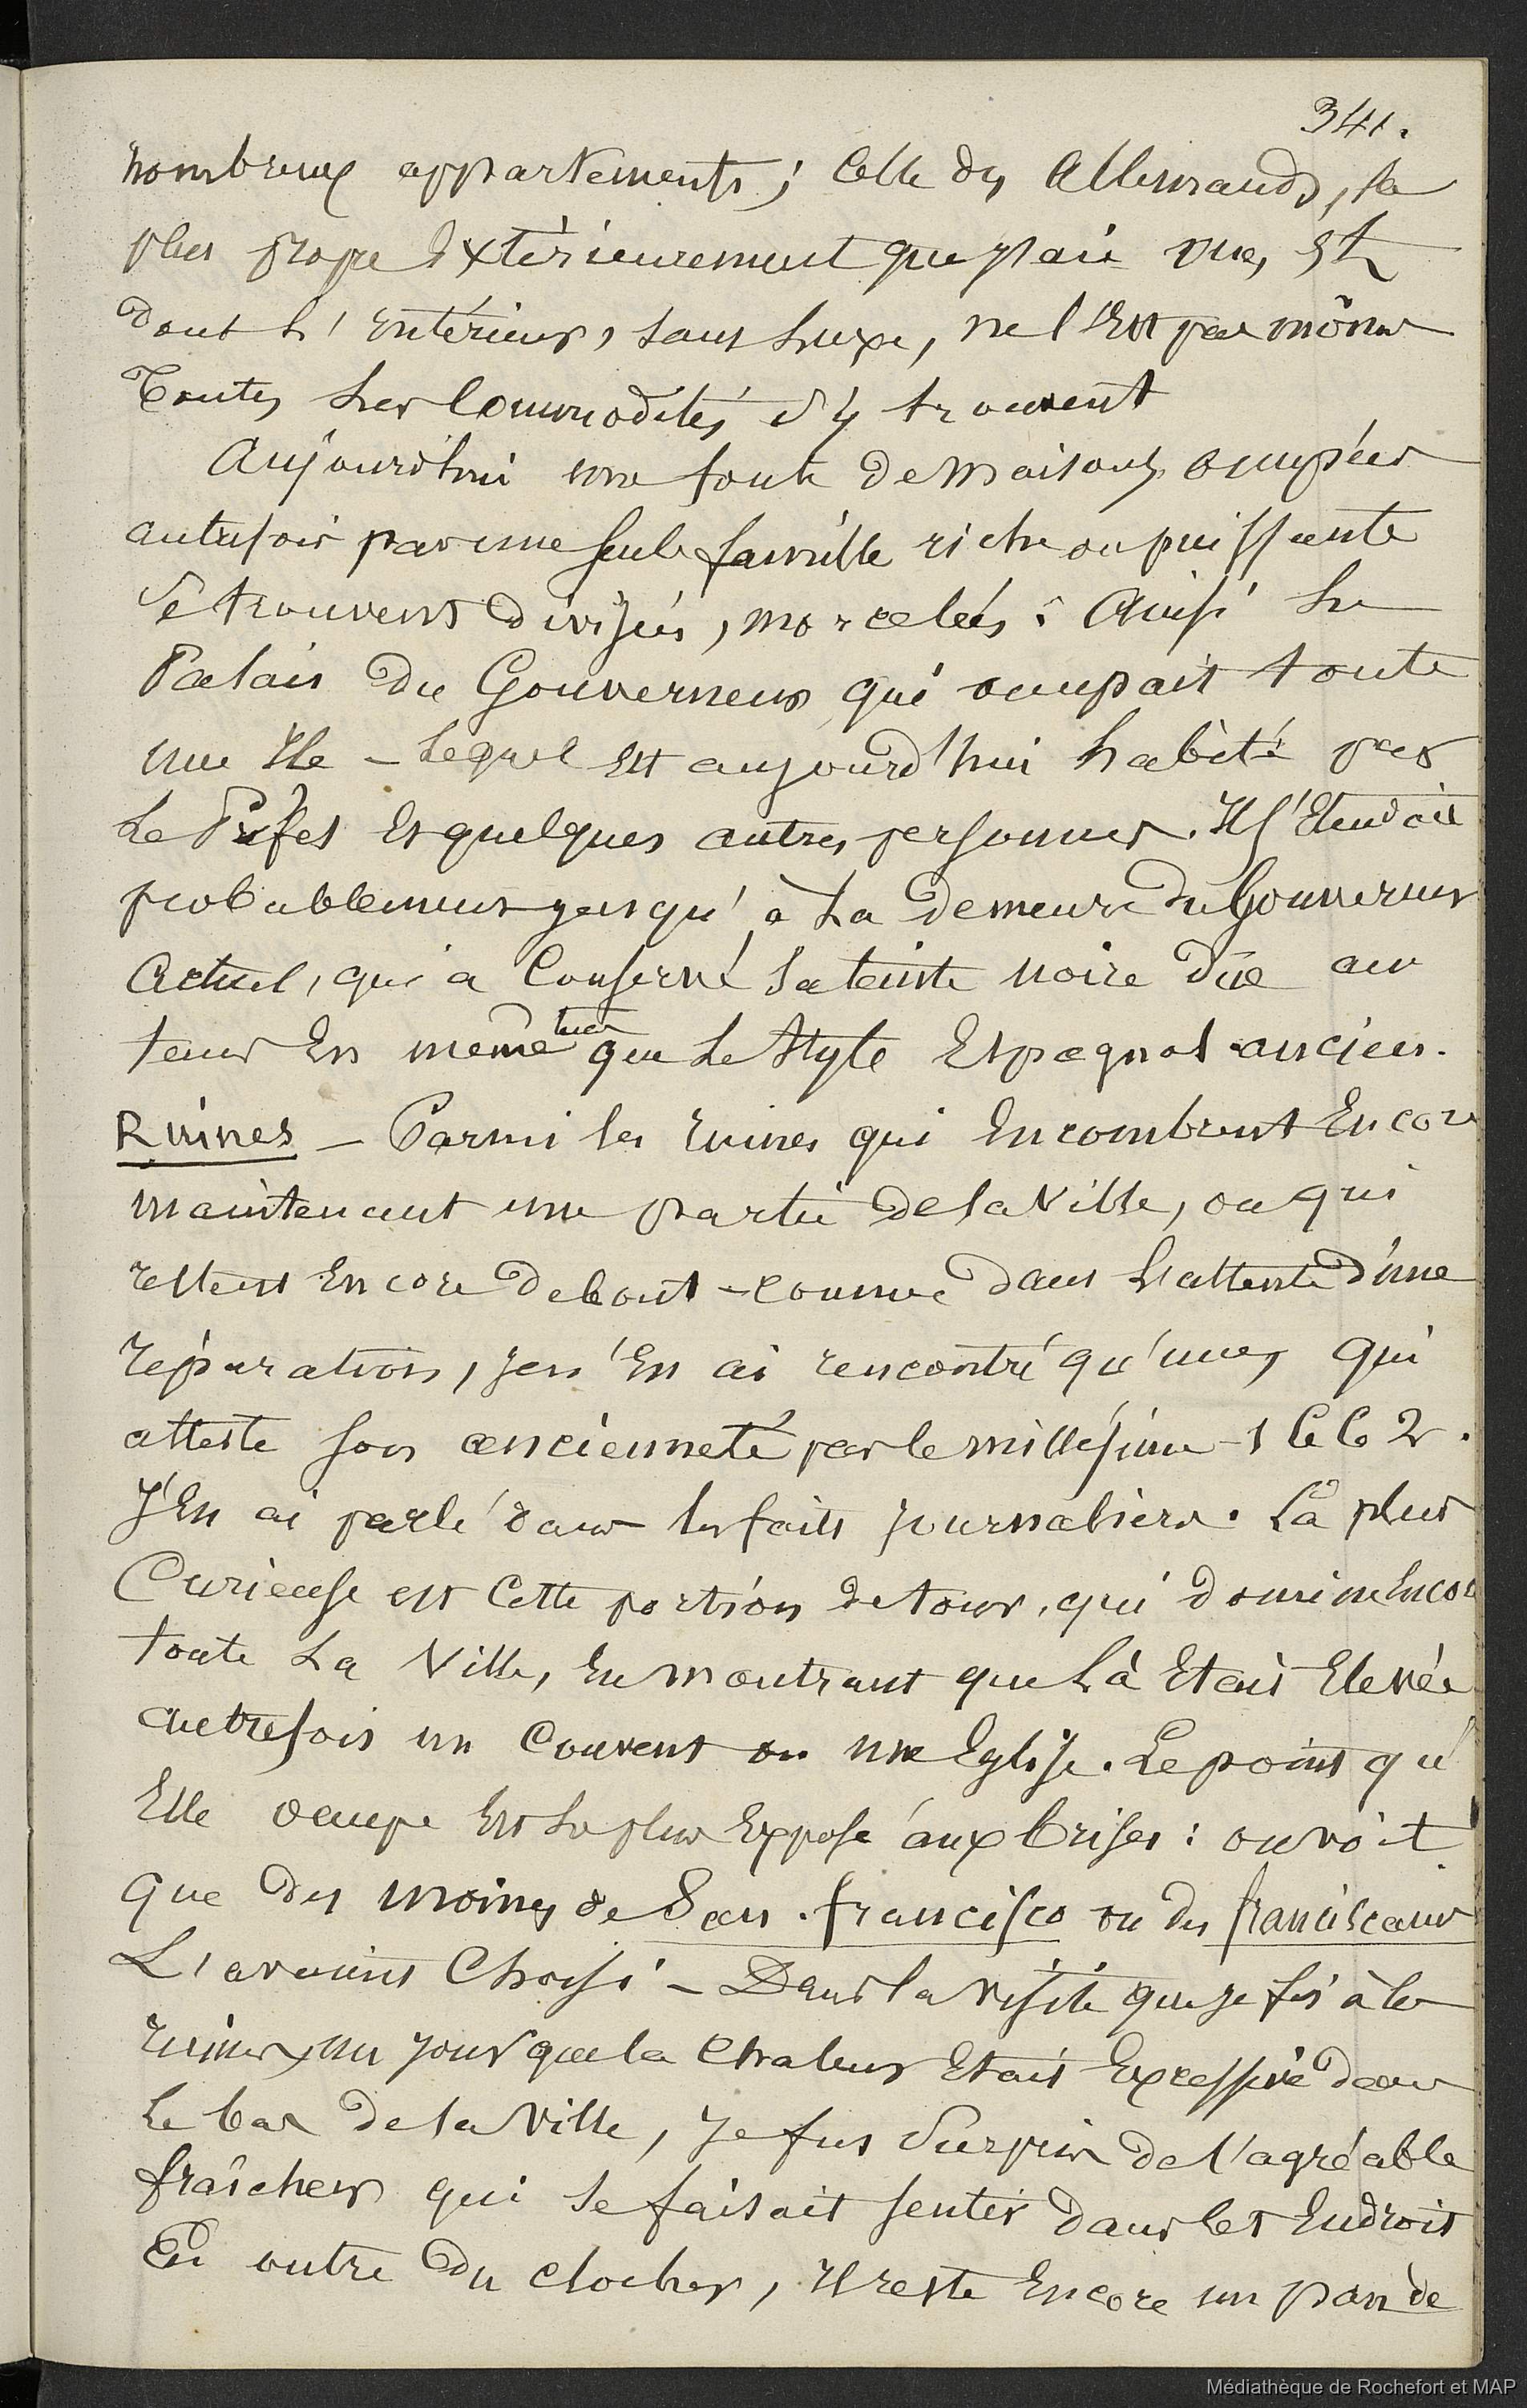 341.
nombreux appartements ; Celle des Allemands, la
plus propre Extérieurement que j'aie vue, Et
dont L'intérieur, sans Luxe, ne l'Est pas moins
Toutes Les Commodités s'y trouvent
Aujourd'hui une foule de maisons occupées
autrefois par une seule famille riche ou puissante
Se trouvent divisées, morcelées : Ainsi Le
Palais du Gouverneur qui occupait toute
une Ile – Lequel Est aujourd'hui habité par
Le Préfet Et quelques autres personnes. Il s'Etendait
probablement jusqu'à La demeure du Gouverneur
Actuel, qui a Conservé Sa teinte noire due au
tems En même tems que Le Style Espagnol ancien.
Ruines – Parmi les ruines qui Encombrent Encore
maintenant une partie de la Ville, ou qui
restent Encore debout – comme dans L'attente d'une
réparation, je n'En ai rencontré qu'une, qui
atteste son ancienneté par le millésime – 1662.
J'En ai parlé dans les faits journaliers. La plus
Curieuse est Cette portion de tour, qui domine Encore
toute La Ville, En montrant que Là Etait Elevée
autrefois un Couvent ou une Eglise. Le point qu'
Elle occupe Est Le plus Exposé aux brises : on voit
que des moines de San. francisco ou des franciscains
L'avaient Choisi – Dans la visite que je fis à ces
ruines, un jour que la Chaleur Etait Excessive dans
Le bas de la Ville, je fus Surpris de l'agréable
fraîcheur qui Se faisait sentir dans Cet Endroit
En outre du clocher, il reste Encore un pan de
Médiathèque de Rochefort et MAP